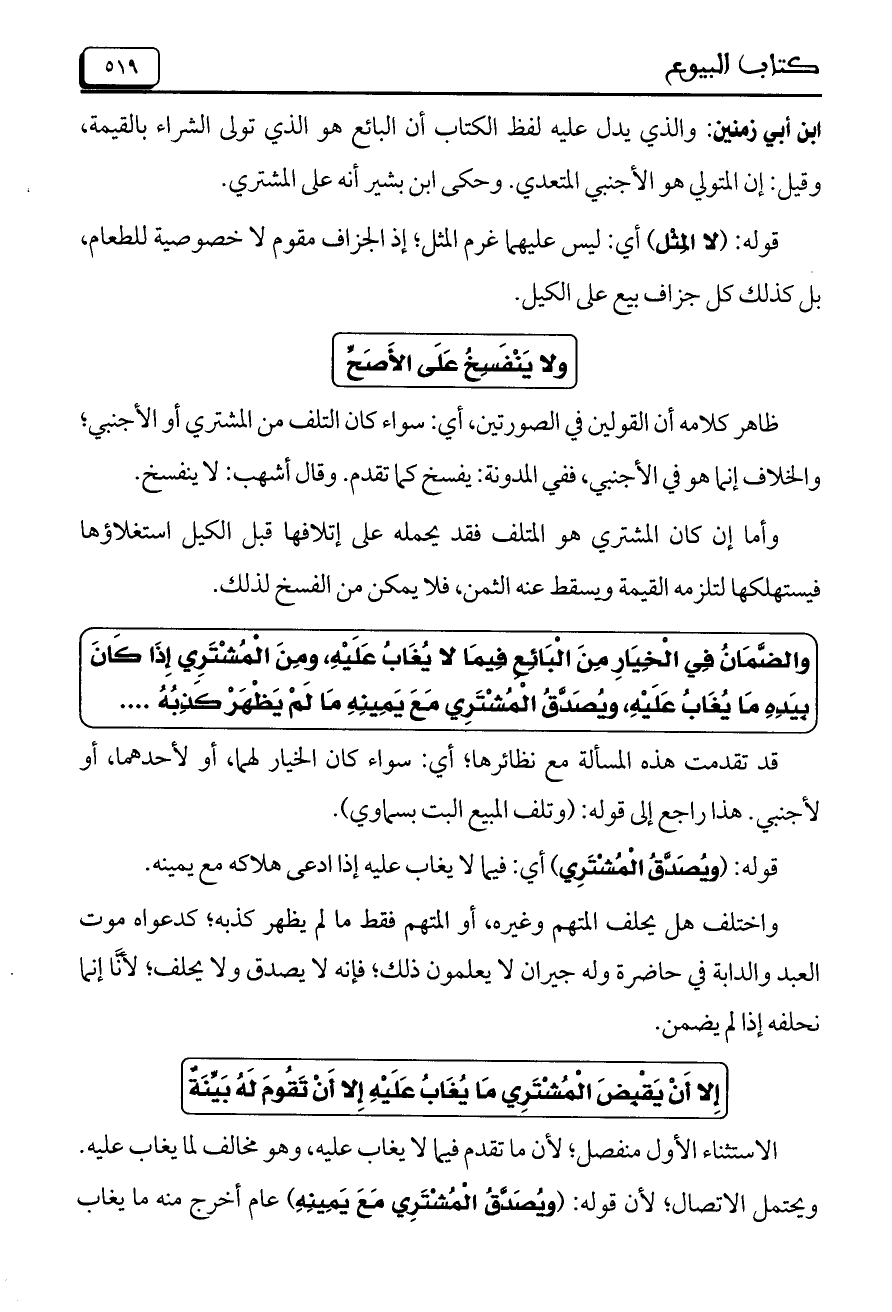 كتاب البيوع
٥١٩
ابن أبي زمنين: والذي يدل عليه لفظ الكتاب أن البائع هو الذي تولى الشراء بالقيمة،
وقيل: إن المتولي هو الأجنبي المتعدي. وحكى ابن بشير أنه على المشتري.
قوله: (لا المِثْل) أي: ليس عليهما غرم المثل؛ إذ الجزاف مقوم لا خصوصية للطعام،
بل كذلك كل جزاف بيع على الكيل.
ولا يَنْفَسِخُ عَلَى الأَصَحِّ
ظاهر كلامه أن القولين في الصورتين، أي: سواء كان التلف من المشتري أو الأجنبي؛
والخلاف إنما هو في الأجنبي، ففي المدونة: يفسخ كما تقدم. وقال أشهب: لا ينفسخ.
وأما إن كان المشتري هو المتلف فقد يحمله على إتلافها قبل الكيل استغلاؤها
فيستهلكها لتلزمه القيمة ويسقط عنه الثمن، فلا يمكن من الفسخ لذلك.
والضَّمَانُ فِي الْخِيَارِ مِنَ الْبَائِعِ فِيمَا لا يُغَابُ عَلَيْهِ، ومِنَ الْمُشْتَرِي إِذَا كَانَ
بِيَدِهِ مَا يُغَابُ عَلَيْهِ، ويُصَدَّقُ الْمُشْتَرِي مَعَ يَمِينِهِ مَا لَمْ يَظْهَرْ كَذِبُهُ ....
قد تقدمت هذه المسألة مع نظائرها؛ أي: سواء كان الخيار لهما، أو لأحدهما، أو
لأجنبي. هذا راجع إلى قوله: (وتلف المبيع البت بسماوي).
قوله: (ويُصَدَّقُ الْمُشْتَرِي) أي: فيما لا يغاب عليه إذا ادعى هلاكه مع يمينه.
واختلف هل يحلف المتهم وغيره، أو المتهم فقط ما لم يظهر كذبه؛ كدعواه موت
العبد والدابة في حاضرة وله جيران لا يعلمون ذلك؛ فإنه لا يصدق ولا يحلف؛ لأنَّا إنما
نحلفه إذا لم يضمن.
إِلا أَنْ يَقْبِضَ الْمُشْتَرِي مَا يُغَابُ عَلَيْهِ إِلا أَنْ تَقُومَ لَهُ بَيِّنَةٌ
الاستثناء الأول منفصل؛ لأن ما تقدم فيما لا يغاب عليه، وهو مخالف لما يغاب عليه.
ويحتمل الاتصال؛ لأن قوله: (ويُصَدَّقُ الْمُشْتَرِي مَعَ يَمِينِهِ) عام أخرج منه ما يغاب